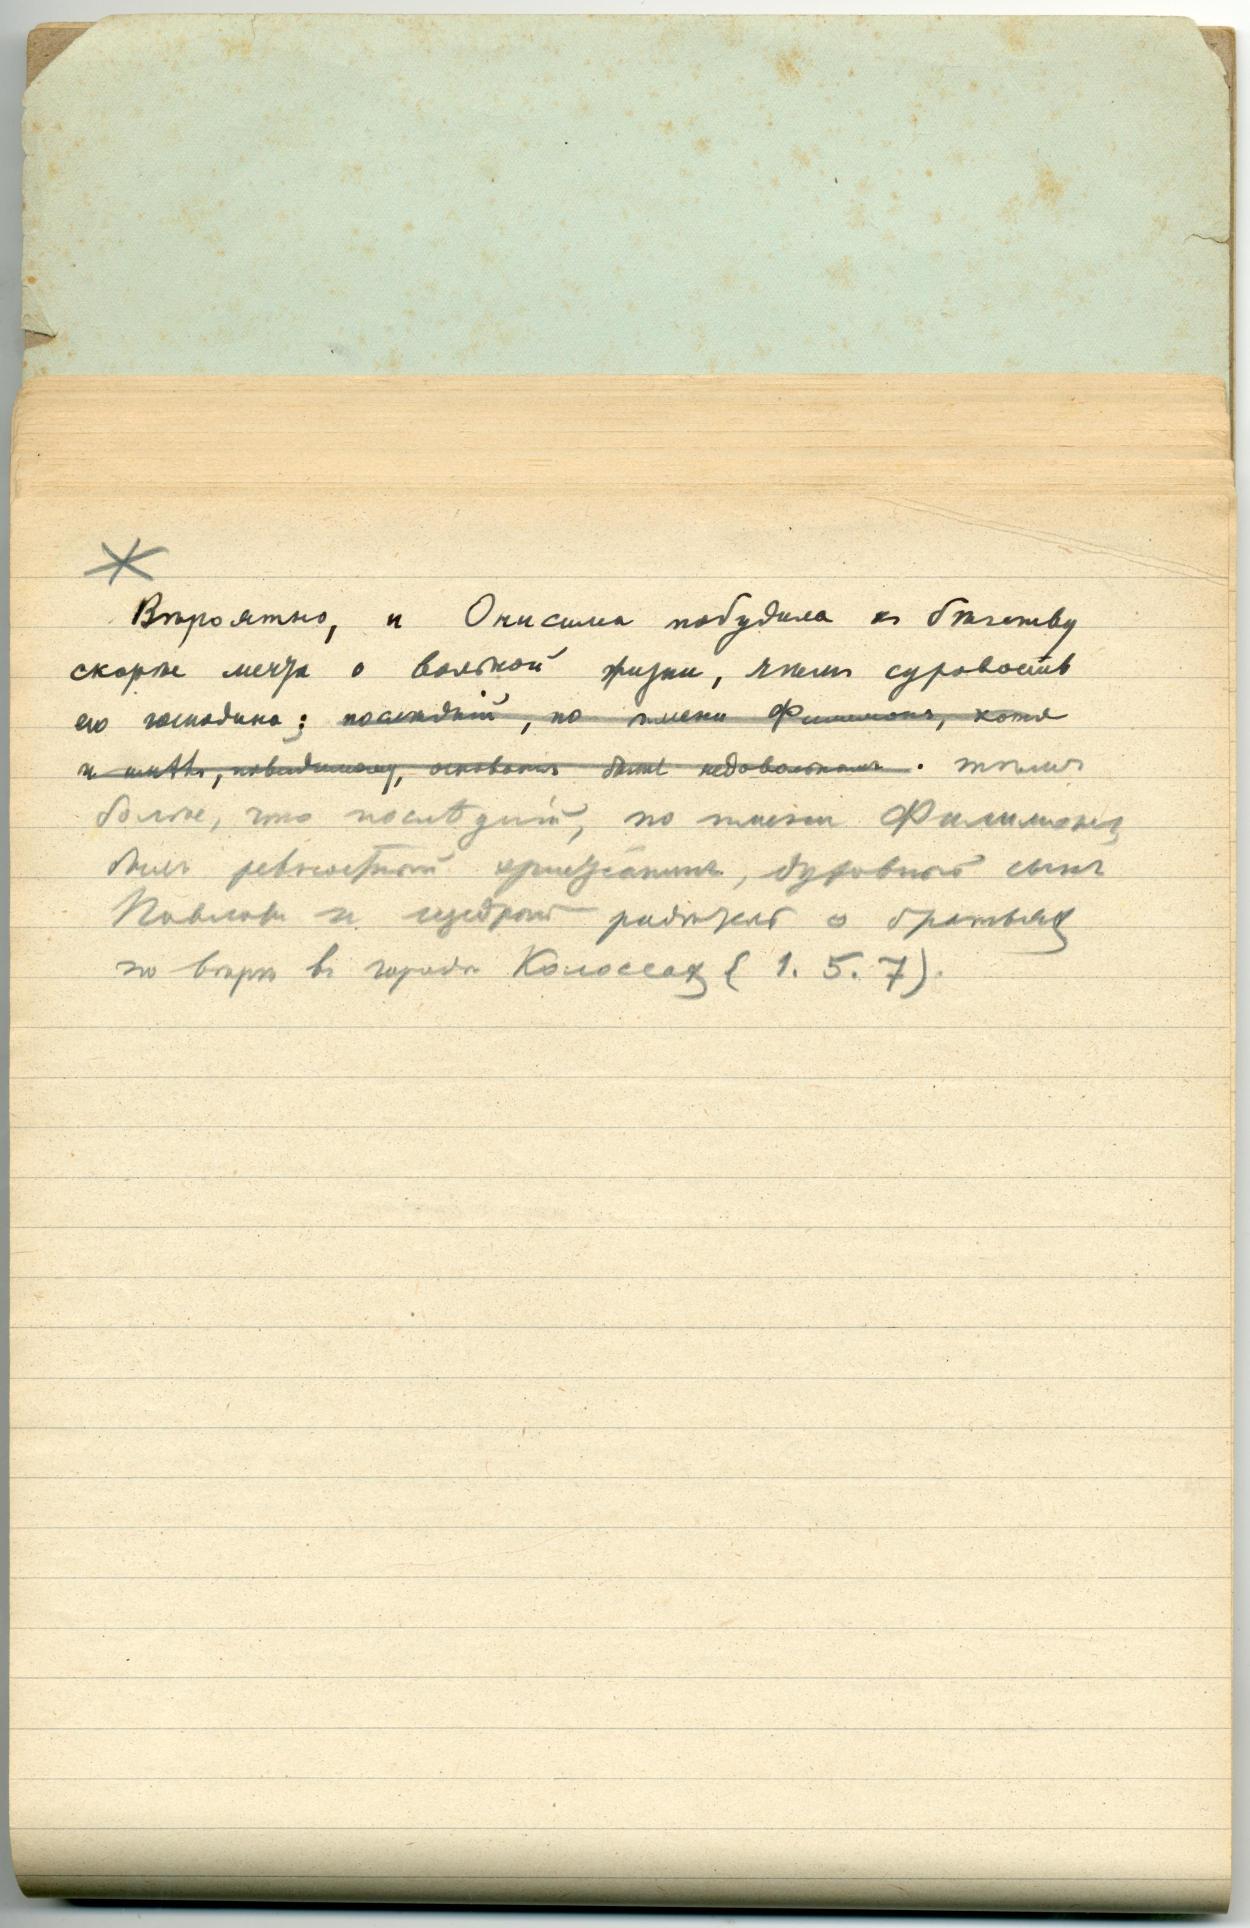 *
Вѣроятно, и Онисима побудила къ бѣгству
скорѣе мечта о вольной жизни, чѣмъ суровость
его господина; послѣдній, по имени Филимонъ, хотя
и имѣлъ, повидимому, основанія быть недовольнымъ. тѣмъ
болѣе, что послѣдній, по имени Филимонъ,
былъ ревностный христіанинъ, духовный сынъ
Павловъ и щедрый радѣтель о братьяхъ
по вѣрѣ въ городѣ Колоссахъ (1. 5. 7).